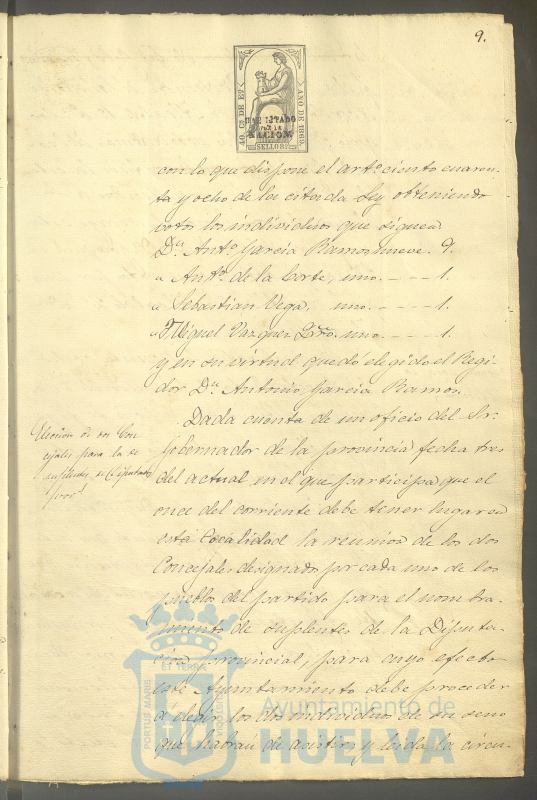 9.
40 Cs DE Eo
AÑO DE 1869.
HABILITADO
POR LA
NACION.
SELLO 8º
con lo que dispone el artº ciento cuaren-
ta y ocho de la citada Ley obteniendo
votos los individuos que siguen
Dn. Antº Garcia Ramos nueve. 9.
" Antº de la Corte, uno. - - - 1.
" Sebastian Vega, uno. - - - 1.
" Miguel Vazquez uno. - - - 1.
y en su virtud quedó elegido el Regi-
dor Dn. Antonio Garcia Ramos.
Dada cuenta de un oficio del Sr.
Gobernador de la provincia fecha tres
del actual en el que participa que el
once del corriente debe tener lugar en
esta Localidad la reunion de los dos
Concejales designados por cada uno de los
pueblos del partido para el nombra-
miento de suplentes de la Diputa-
cion provincial, para cuyo efecto
este Ayuntamiento debe proceder
á elegir los dos individuos de su seno
que habran de asistir, y leida la circu-
Eleccion de dos Con-
cejales para la de
suplentes de Diputados
provs.
PORTUS MARIS
ET TERRE
CUSTODIA
Ayuntamiento de
HUELVA